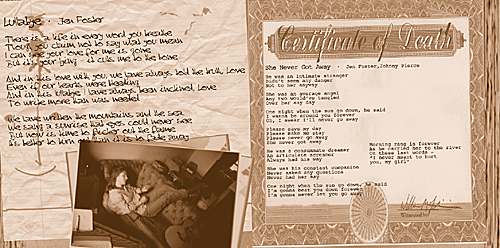 Lullabye · Jen Foster
There is a life in every word you breathe
Though you claim not to say what you mean
I can see your love for me is gone
But it's your lying - it cuts me to the bone
And in this love with you, we have always told the truth, Love
Even if our hearts were
And in this lullabye I have always been inclined, Love
To write more than was needed
We have written the mountains and the sea
We sang a sunrise that eyes could never see
But now it's time to the flame
It's better to burn out than it is to fade away
Certificate of Death
She Never Got Away · Jen Foster, Johnny Pierce
He was an intimate stranger
Didn't seem any danger
Not to her anyway
She was an average angel
Any two would've tangled
Over her any day
One night when the sun go down, he said
I wanna be around you forever
Oh, I swear I'll never go away
Please save my day
Please make me stay
Please never go away
She never got away
He was a consummate dreamer
An articulate screamer
Always had his way
She was his constant companion
Never asked any questions
Never had her say
One night when the sun go down, he said
I'm gonna beat you down forever
I'm gonna never let you go away
Morning rang in forever
As he carried her to the river
On these last words -
"I never meant to hurt
you, my girl"